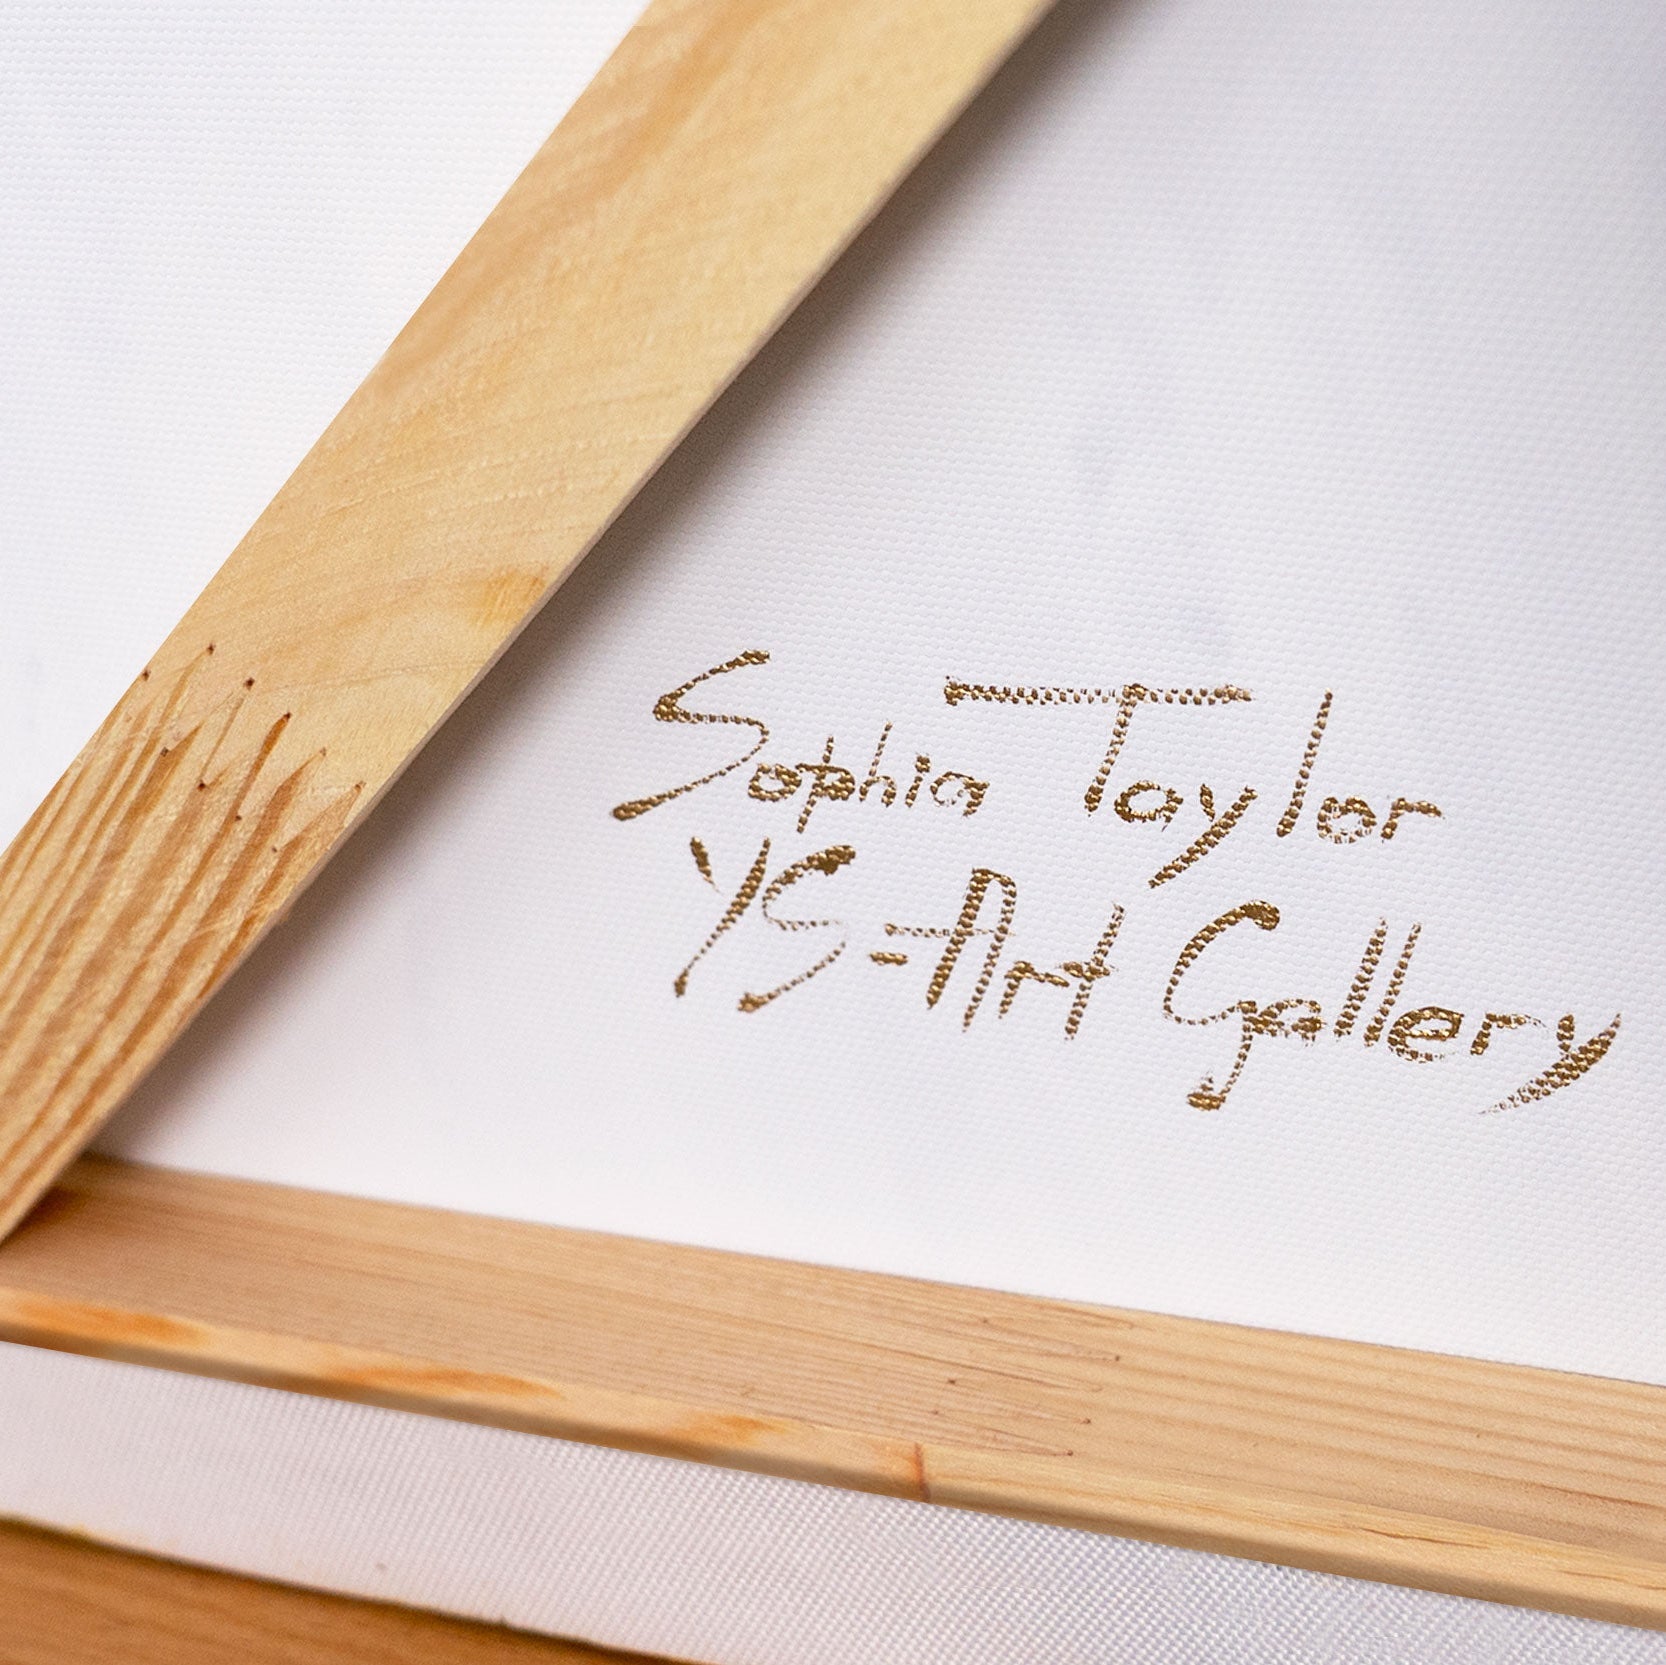 Sophia Taylor
YS-Art Gallery